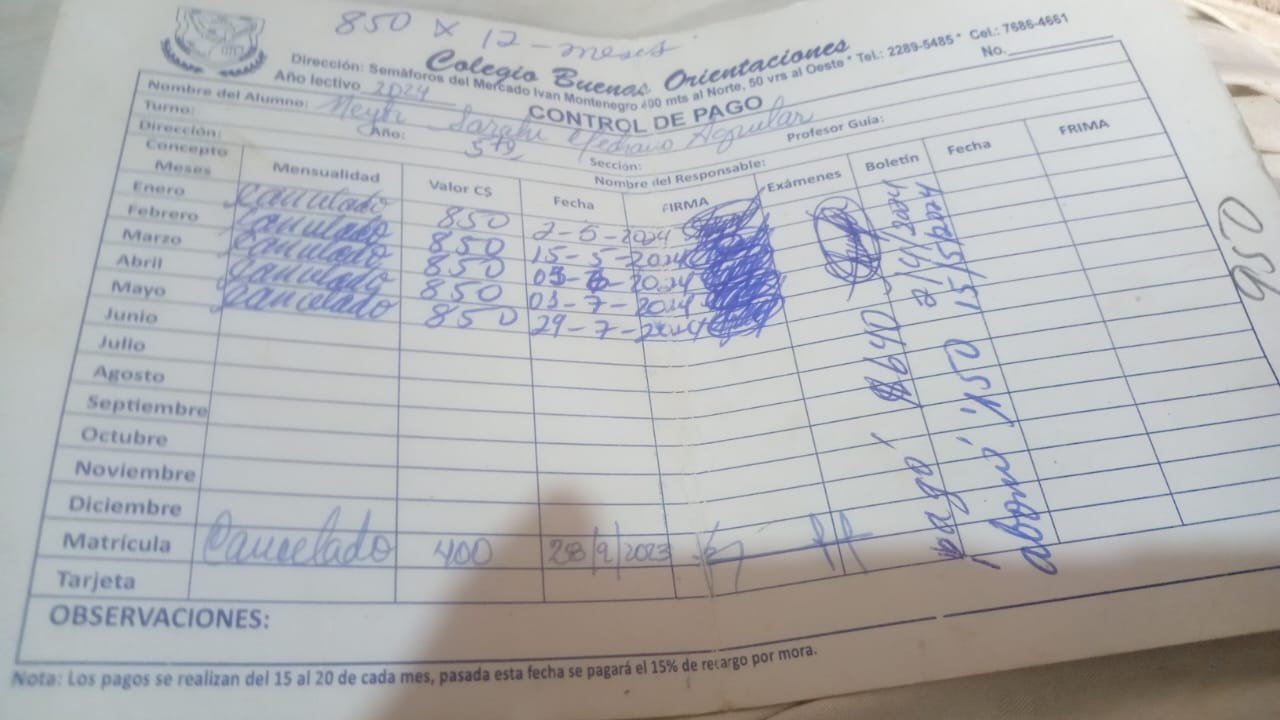 850 x 12 - meses
Colegio Buenas Orientaciones
Dirección: Semáforos del Mercado Ivan Montenegro 400 mts al Norte, 50 vrs al Oeste * Tel.: 2289-5485 * Cel.: 7686-4661
Año lectivo 2024
No.
CONTROL DE PAGO
Nombre del Alumno: Sarahi Aguilar
Turno: Año: 5to Sección: Profesor Guía:
Dirección: Nombre del Responsable:
Concepto Meses Mensualidad Valor C$ Fecha FIRMA Exámenes Boletín Fecha FRIMA
Enero Cancelado 850 2-5-2024
Febrero Cancelado 850 15-5-2024
Marzo Cancelado 850 2024
Abril Cancelado 850 03-7-2024
Mayo Cancelado 850 29-7-2024
Junio
Julio
Agosto
Septiembre
Octubre
Noviembre
Diciembre
Matrícula Cancelado 400 28/9/2023
Tarjeta
OBSERVACIONES:
Nota: Los pagos se realizan del 15 al 20 de cada mes, pasada esta fecha se pagará el 15% de recargo por mora.
pagó 640
abonó 450 15/5/2024
950